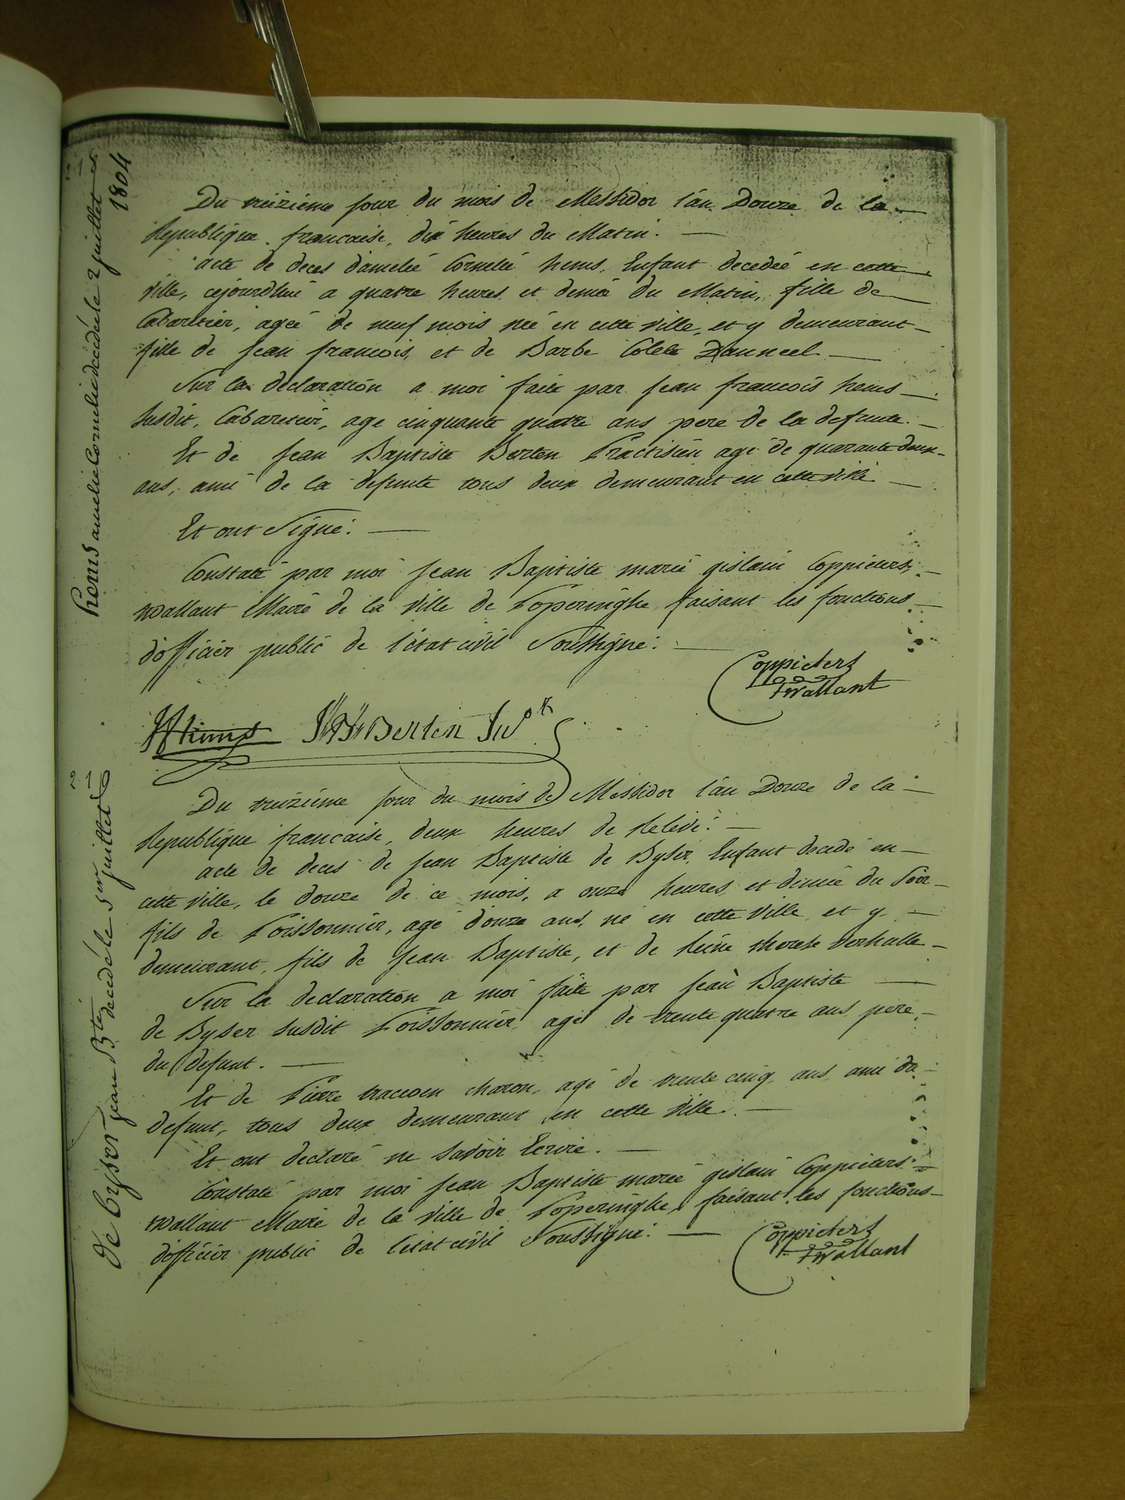 Du treizieme Jour du mois de Messidor l'an Douze de la
Republique francaise, dix heures du Matin.
acte de deces d'amelie Cornelie hems, Enfant decedée en cette
ville, cejourdhui a quatre heures et demie du Matin, fille de
Cabaretier, agée de neuf mois née en cette ville, et y demeurant
fille de Jean francois, et de Barbe Colete Danneel
Sur la declaration a moi faite par Jean francois hems
susdit, Cabaretier, age cinquante quatre ans pere de la defunte.
Et de Jean Baptiste Berten Practisien agé de quarante deux
ans, ami de la defunte tous deux demeurant en cette ville
Et ont Signé.
Constaté par moi Jean Baptiste marie gislain Coppieters
wallant Maire de la ville de Poperinghe, faisant les fonctions
d'officier public de l'état civil Soussigné.
Coppieters
Wallant
JF hems JB Berten
Du treizieme Jour du mois de Messidor l'an Douze de la
Republique francaise, deux heures de Relevé.
acte de deces de Jean Baptiste de Byser, Enfant decedé en
cette ville, le douze de ce mois, a onze heures et demie du Soir
fils de Poissonnier, agé d'onze ans, né en cette ville et y
demeurant, fils de Jean Baptiste, et de Reine therese verhulle
Sur la declaration a moi faite par Jean Baptiste
de Byser susdit Poissonnier, agé de trente quatre ans, pere
du defunt.
Et de Pierre tracoen charon, agé de trente cinq ans ami du
defunt, tous deux demeurant en cette ville.
Et ont declaré ne Savoir Ecrire.
Constaté par moi Jean Baptiste marie gislain Coppieters
wallant Maire de la ville de Poperinghe, faisant les fonctions
d'officier public de l'état civil Soussigné.
Coppieters
Wallant
Hems amelie Cornelie décédé le 2 juillet
1804
21
de Byser jean Bte décédé le 1er juillet